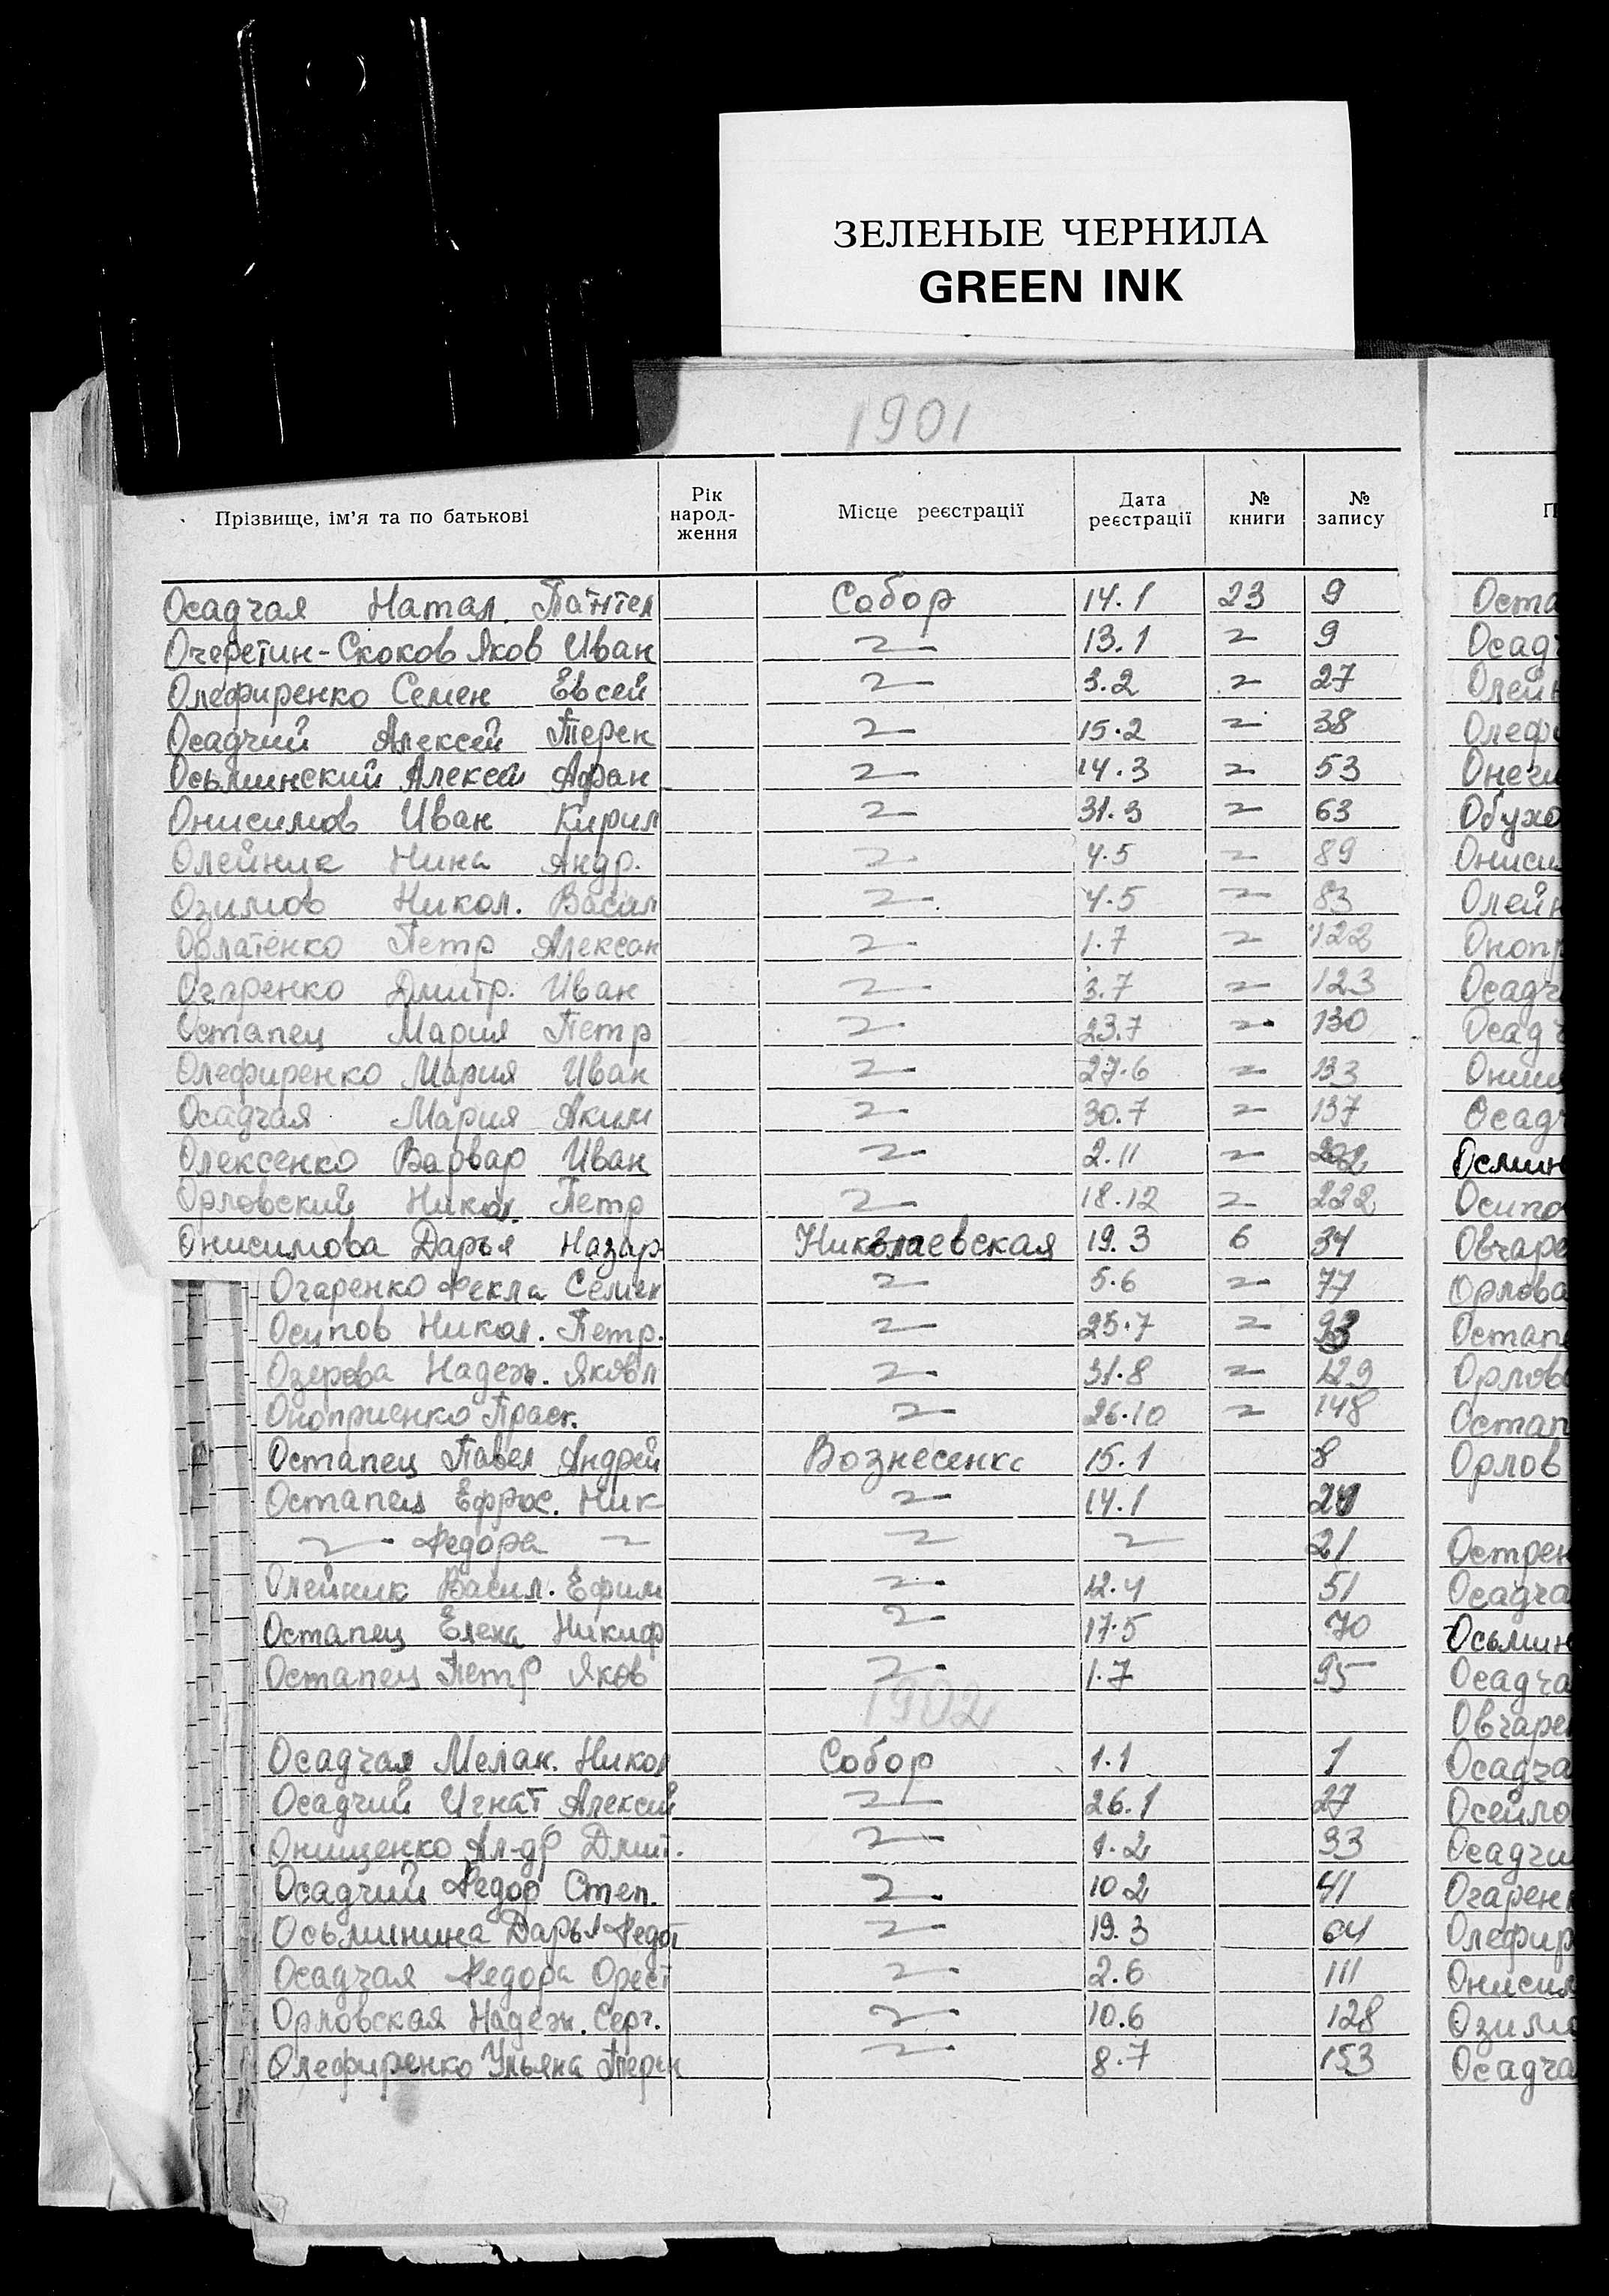 ЗЕЛЕНЫЕ ЧЕРНИЛА
GREEN INK
1901
Прізвище, ім’я та по батькові Рік народ-ження Місце реєстрації Дата реєстрації № книги № запису
Осадчая Натал. Пантел Собор 14.1 23 9
Очеретин-Скоков Яков Иван 〃 13.1 〃 9
Олефиренко Семен Евсей 〃 3.2 〃 27
Осадчий Алексей Терен 〃 15.2 〃 38
Осьминский Алексей Афан 〃 14.3 〃 53
Онисимов Иван Кирил 〃 31.3 〃 63
Олейник Нина Андр. 〃 4.5 〃 89
Озимов Никол. Васил 〃 4.5 〃 83
Облатенко Петр Алексан 〃 1.7 〃 122
Огаренко Дмитр. Иван 〃 3.7 〃 123
Остапец Мария Петр 〃 23.7 〃 130
Олефиренко Мария Иван 〃 27.6 〃 133
Осадчая Мария Аким 〃 30.7 〃 137
Олексенко Варвар Иван 〃 2.11 〃
Орловский Никол. Петр 〃 18.12 〃 222
Онисимова Дарья Назар Николаевская 19.3 6 34
Огаренко Фекла Семен 〃 5.6 〃 77
Осипов Никол. Петр. 〃 25.7 〃 93
Озерова Надеж. Яковл 〃 31.8 〃 129
Оноприенко Праск. 〃 26.10 〃 148
Остапец Павел Андрей Вознесенс 15.1 8
Остапец Ефрос. Ник 〃 14.1
〃 Федора 〃 〃 〃 21
Олейник Васил. Ефим 〃 12.4 51
Остапец Елена Никиф 〃 17.5 70
Остапец Петр Яков 〃 1.7 95
1902
Осадчая Мелан. Никол Собор 1.1 1
Осадчий Игнат Алексей 〃 26.1 27
Онищенко Ал-др Дмит. 〃 1.2 33
Осадчий Федор Степ. 〃 10.2 41
Осьминина Дарья Федот 〃 19.3 64
Осадчая Федора Орест 〃 2.6 111
Орловская Надеж. Серг. 〃 10.6 128
Олефиренко Ульяна Терен 〃 8.7 153
П
Оста
Осадч
Олейн
Олефи
Онеги
Обухо
Ониси
Олейн
Онопр
Осадч
Осадч
Онищ
Осадч
Осмин
Осипо
Овчаре
Орлова
Остап
Орлов
Остап
Орлов
Острен
Осадча
Осьмин
Осадча
Овчаре
Осадча
Осадчи
Огарен
Олефир
Онисим
Озимо
Осадча